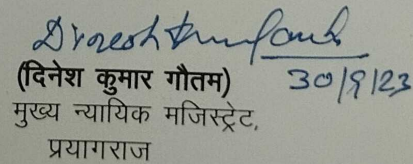 Dinesh Kumar Gautam
(दिनेश कुमार गौतम) 30/9/23
मुख्य न्यायिक मजिस्ट्रेट,
प्रयागराज